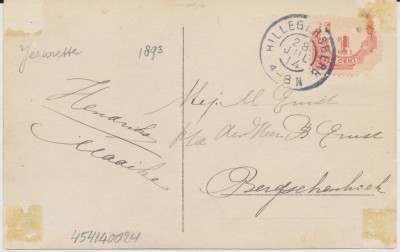 Jeanette
1893
HILLEGERSBERG
28
JUL
14
4-8N
1
CENT
Hendrika
Maaike
Mej. M. Ernst
p/a den Heer B Ernst
Bergschenhoek
454140024